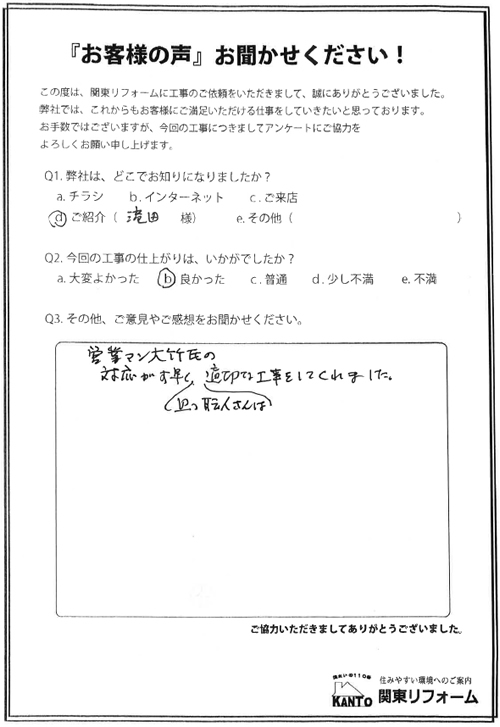 『お客様の声』お聞かせください！
この度は、関東リフォームに工事のご依頼をいただきまして、誠にありがとうございました。
弊社では、これからもお客様にご満足いただける仕事をしていきたいと思っております。
お手数ではございますが、今回の工事につきましてアンケートにご協力を
よろしくお願い申し上げます。
Q1. 弊社は、どこでお知りになりましたか？
a. チラシ b. インターネット c. ご来店
d ご紹介（ 滝田 様） e. その他（ ）
Q2. 今回の工事の仕上がりは、いかがでしたか？
a. 大変よかった b 良かった c. 普通 d. 少し不満 e. 不満
Q3. その他、ご意見やご感想をお聞かせください。
営業マン大竹氏の
対応がす早く、適切な工事をしてくれました。
且つ職人さんは
ご協力いただきましてありがとうございました。
住まいの110番
KANTO
住みやすい環境へのご案内
関東リフォーム